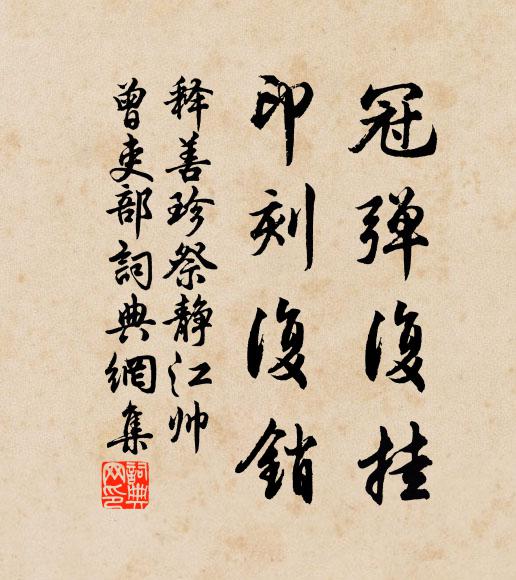 冠弹復挂
印刻復銷
释善珍祭静江帅
曾吏部詞典網集
詞典网印